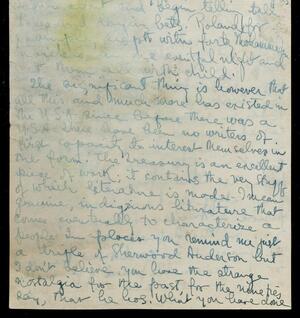 and begin tellin' tall
in bed. Roland for
with forte
night and
it with child.
The significant thing is however that
all this and much more has existed in
the U.S.A. since before there was a
U.S.A. There have been no writers of
high capacity to interest themselves in
the form. The treasury is an excellent
piece of work, it contains the very stuff
of which literature is made. I mean
genuine, indigenous literature that
come eventually to characterize a
people. In places you remind me just
a trifle of Sherwood Anderson but
I don't believe you have the strange
nostalgia for the past, for the nineties
say, that he has. What you have done